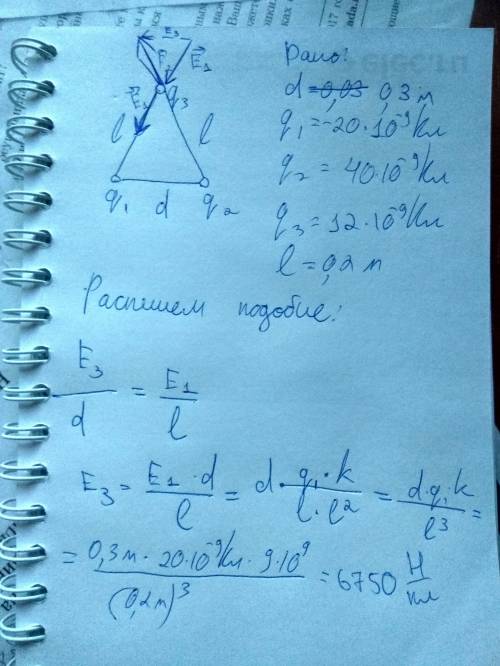 E₃
E₂
E₁
E₁
q₃
l
l
q₁ d q₂
Дано:
d = 0,03 0,3 м
q₁ = -20·10⁻⁹ Кл
q₂ = 40·10⁻⁹ Кл
q₃ = 12·10⁻⁹ Кл
l = 0,2 м
Распишем подобие:
E₃/d = E₁/l
E₃ = E₁·d/l = d·q₁·k/l·l² = d·q₁k/l³ =
= 0,3м·20·10⁻⁹Кл·9·10⁹/(0,2м)³ = 6750 Н/кл